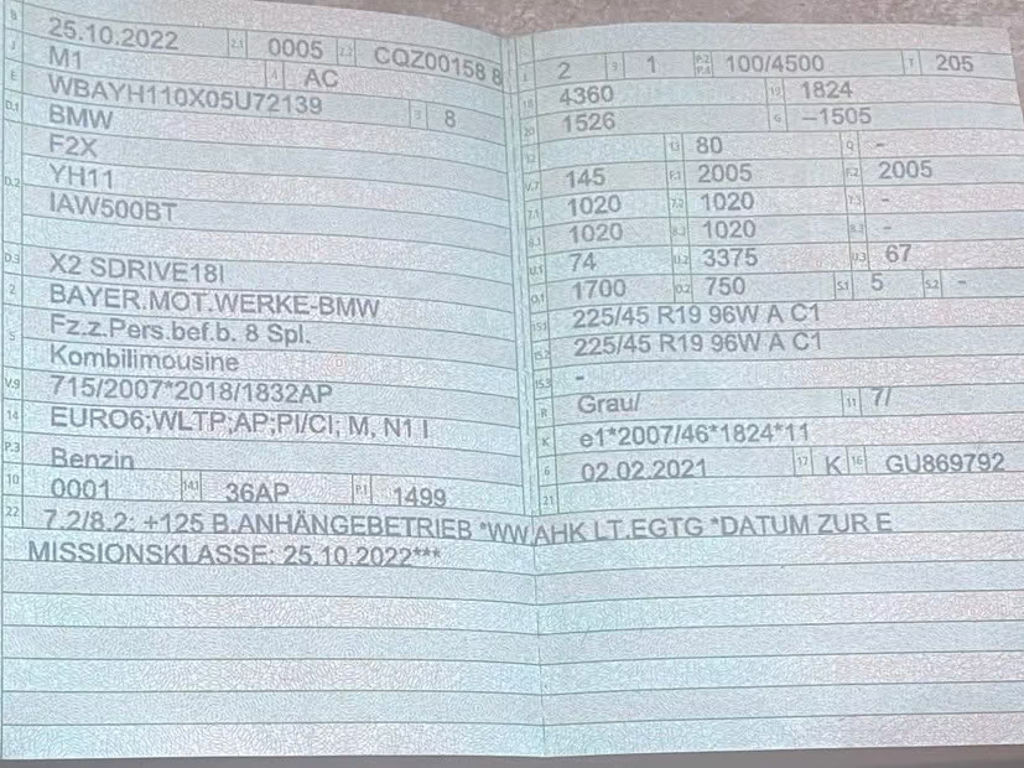 B 25.10.2022 2.1 0005 2.2 CQZ00158 8
J M1 4 AC
E WBAYH110X05U72139 3 8
D.1 BMW
F2X
D.2 YH11
IAW500BT
D.3 X2 SDRIVE18I
2 BAYER.MOT.WERKE-BMW
5 Fz.z.Pers.bef.b. 8 Spl.
Kombilimousine
V.9 715/2007*2018/1832AP
14 EURO6;WLTP;AP;PI/CI; M, N1 I
P.3 Benzin
10 0001 14.1 36AP P.1 1499
L 2 9 1 P.2 P.4 100/4500 T 205
18 4360 19 1824
20 1526 G –1505
12 13 80 Q -
V.7 145 F.1 2005 F.2 2005
7.1 1020 7.2 1020 7.3 -
8.1 1020 8.2 1020 8.3 -
U.1 74 U.2 3375 U.3 67
O.1 1700 O.2 750 S.1 5 S.2 -
15.1 225/45 R19 96W A C1
15.2 225/45 R19 96W A C1
15.3 -
R Grau/ 11 7/
K e1*2007/46*1824*11
6 02.02.2021 17 K 16 GU869792
21
22 7.2/8.2: +125 B.ANHÄNGEBETRIEB *WW AHK LT.EGTG *DATUM ZUR E
MISSIONSKLASSE: 25.10.2022***